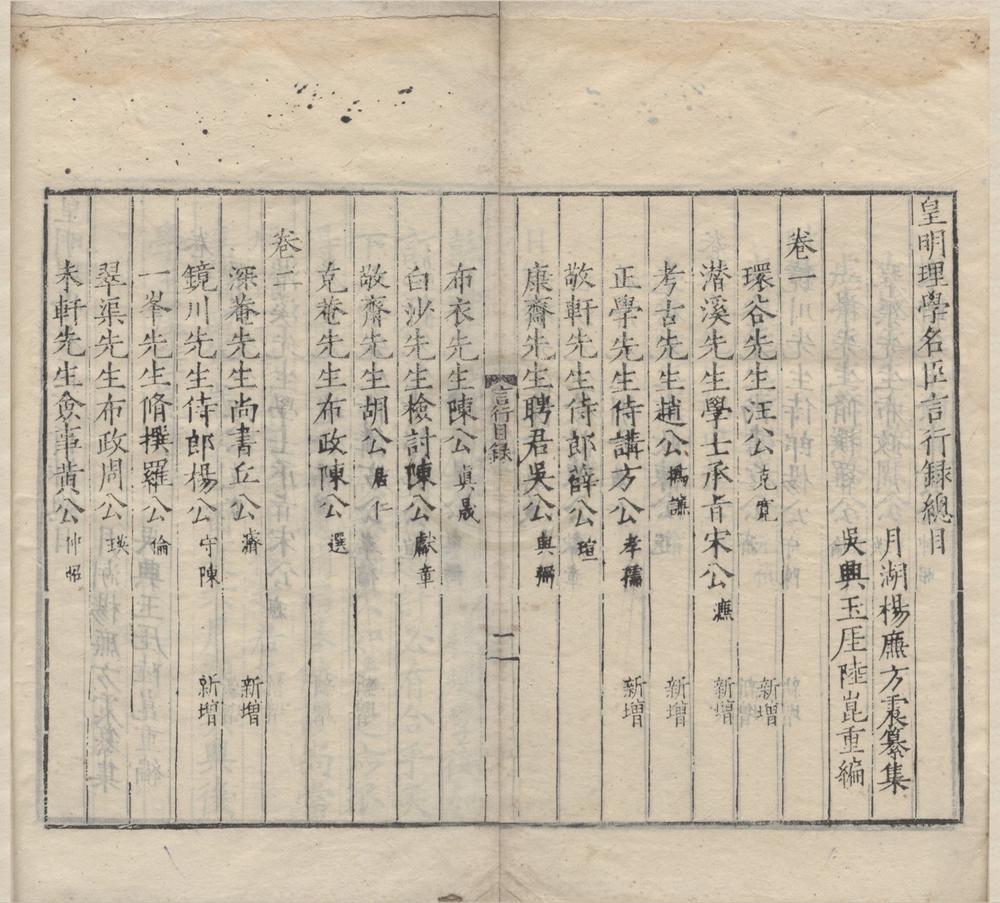 皇明理學名臣言行録總目
月湖楊廉方震纂集
吳興玉厓陸崑重編
卷一
環谷先生汪公克寬 新增
潜溪先生學士承旨宋公濂 新增
考古先生趙公撝謙 新增
正學先生侍講方公孝孺 新增
敬軒先生侍郎薛公瑄
康齋先生聘君吳公與弼
言行目録
二
布衣先生陳公眞晟
白沙先生檢討陳公獻章
敬齋先生胡公居仁
克菴先生布政陳公選
卷二
深菴先生尚書丘公濬 新增
鏡川先生侍郎楊公守陳 新增
一峯先生脩撰羅公倫
翠渠先生布政周公瑛
未軒先生僉事黄公仲昭